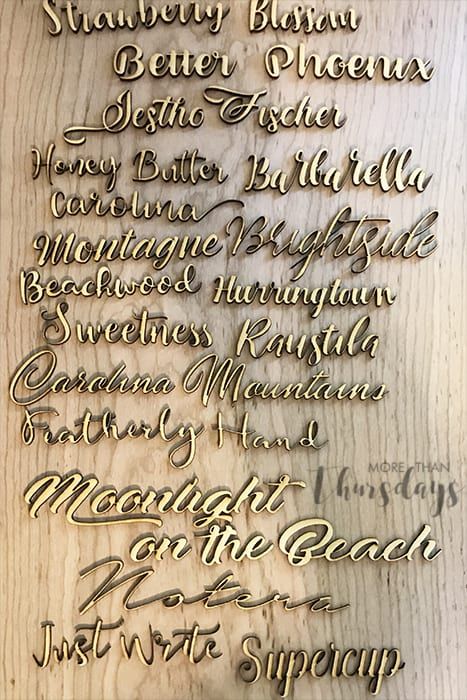 Strawberry Blossom
Better Phoenix
Jestho Fischer
Honey Butter Barbarella
Carolina
Montagne Brightside
Beachwood Hurringtown
Sweetness Raustila
Carolina Mountains
Featherly Hand
MORE THAN
Thursdays
Moonlight
on the Beach
Notera
Just Write Supercup